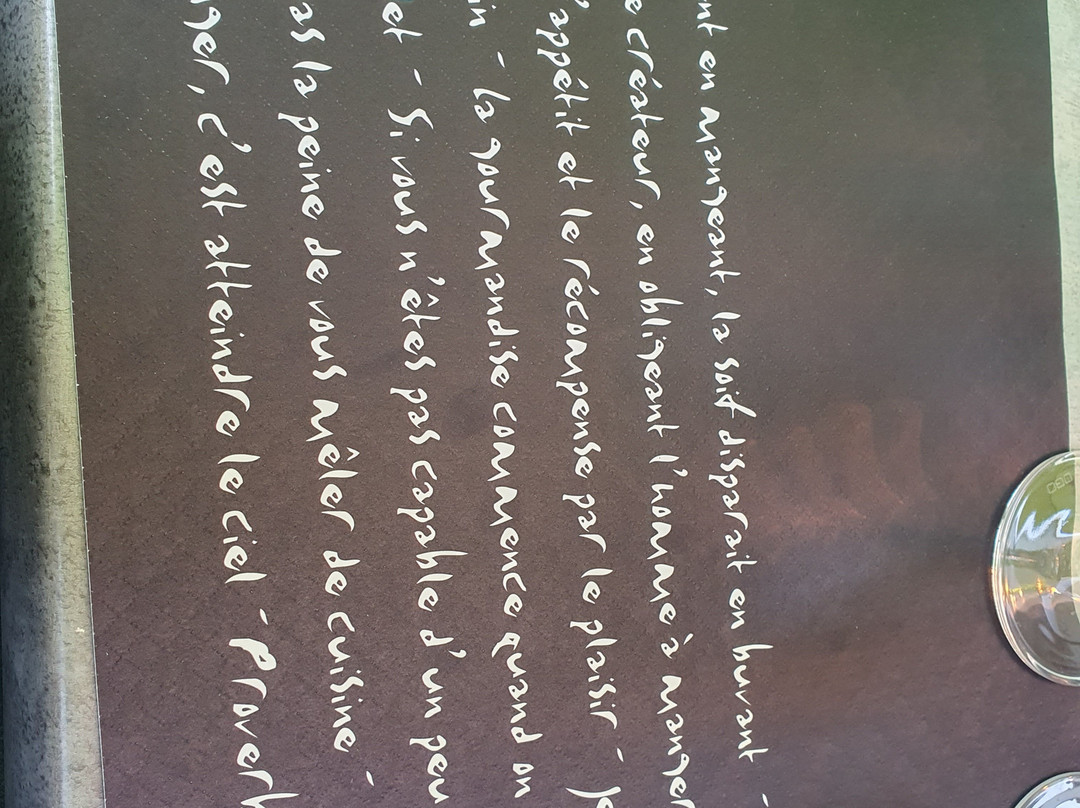 nt en mangeant, la soif disparait en buvant -
e créateur, en obligeant l'homme à manger
'appétit et le récompense par le plaisir - Je
in - la gourmandise commence quand on
et - Si vous n'êtes pas capable d'un peu
as la peine de vous mêler de cuisine -
ger, c'est atteindre le ciel - Proverb